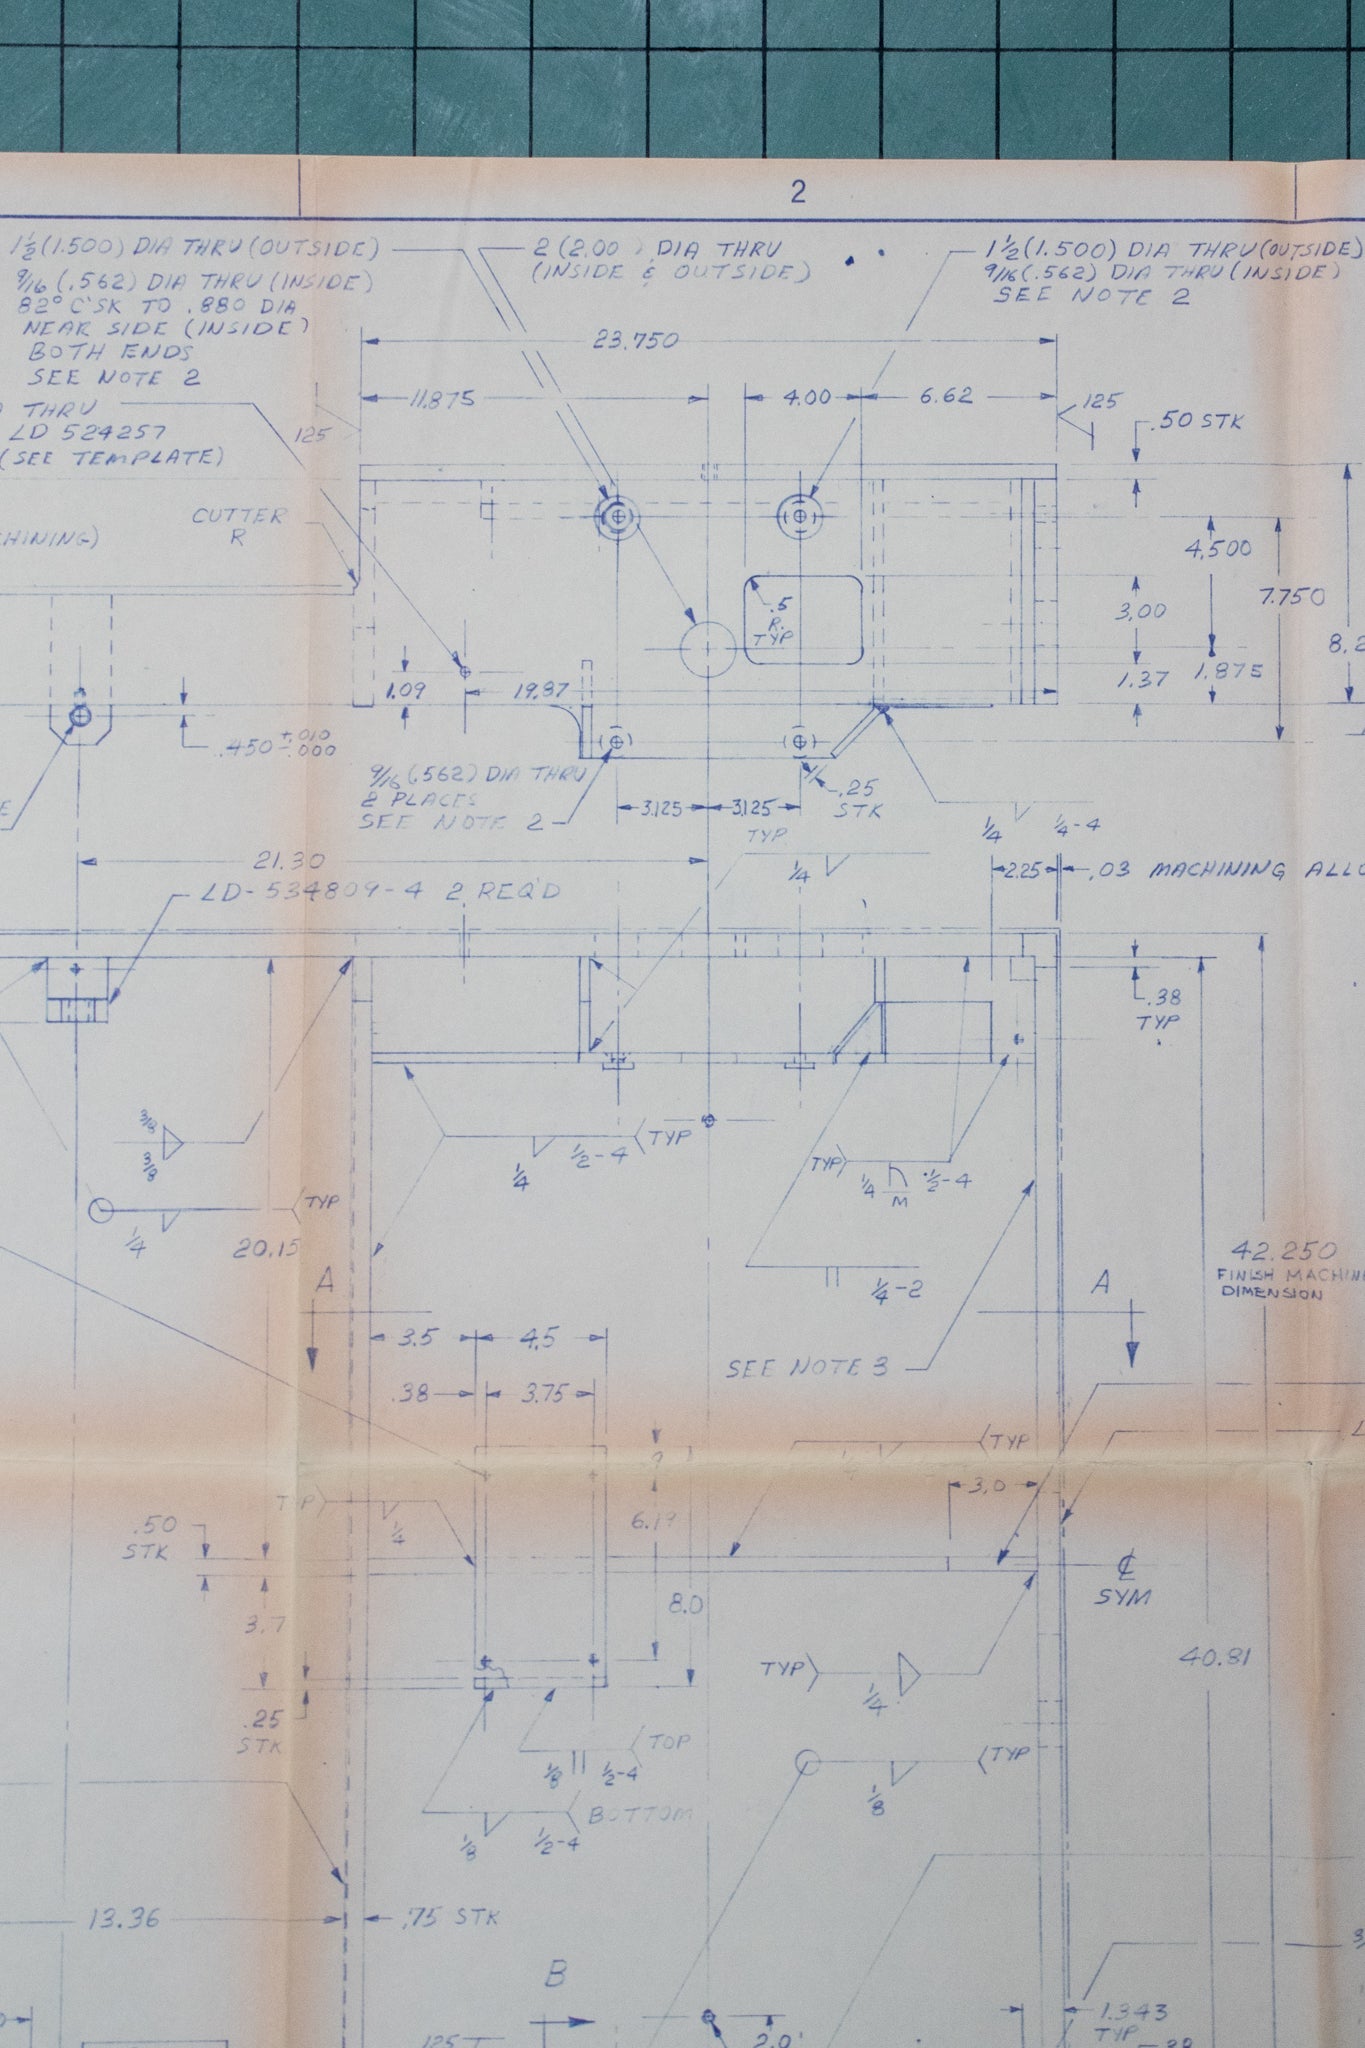 2
1½ (1.500) DIA THRU (OUTSIDE)
9/16 (.562) DIA THRU (INSIDE)
82° C'SK TO .880 DIA
NEAR SIDE (INSIDE)
BOTH ENDS
SEE NOTE 2
THRU
LD 524257
(SEE TEMPLATE)
2 (2.00 ) DIA THRU
(INSIDE & OUTSIDE)
1½ (1.500) DIA THRU (OUTSIDE)
9/16 (.562) DIA THRU (INSIDE)
SEE NOTE 2
23.750
11.875
4.00
6.62
125
125
.50 STK
CUTTER
R
HINING)
4.500
7.750
3.00
8.2
.5
R.
TYP
1.09
19.87
1.37
1.875
.450 +.010 -.000
9/16 (.562) DIA THRU
2 PLACES
SEE NOTE 2
.25
STK
3.125
3.125
TYP
1/4
1/4
1/4-4
21.30
2.25
.03 MACHINING ALLO
LD-534809-4 2 REQ'D
.38
TYP
3/8
3/8
TYP
1/4
1/2-4
TYP
1/4
M
1/2-4
TYP
1/4
20.15
1/4-2
42.250
FINISH MACHIN
DIMENSION
A
A
3.5
4.5
SEE NOTE 3
.38
3.75
TYP
3.0
TYP
1/4
.50
STK
6.19
℄
SYM
3.7
8.0
40.81
TYP
1/4
.25
STK
TOP
1/8
1/2-4
TYP
1/8
BOTTOM
1/8
1/2-4
13.36
.75 STK
B
1.343
TYP
125
2.0